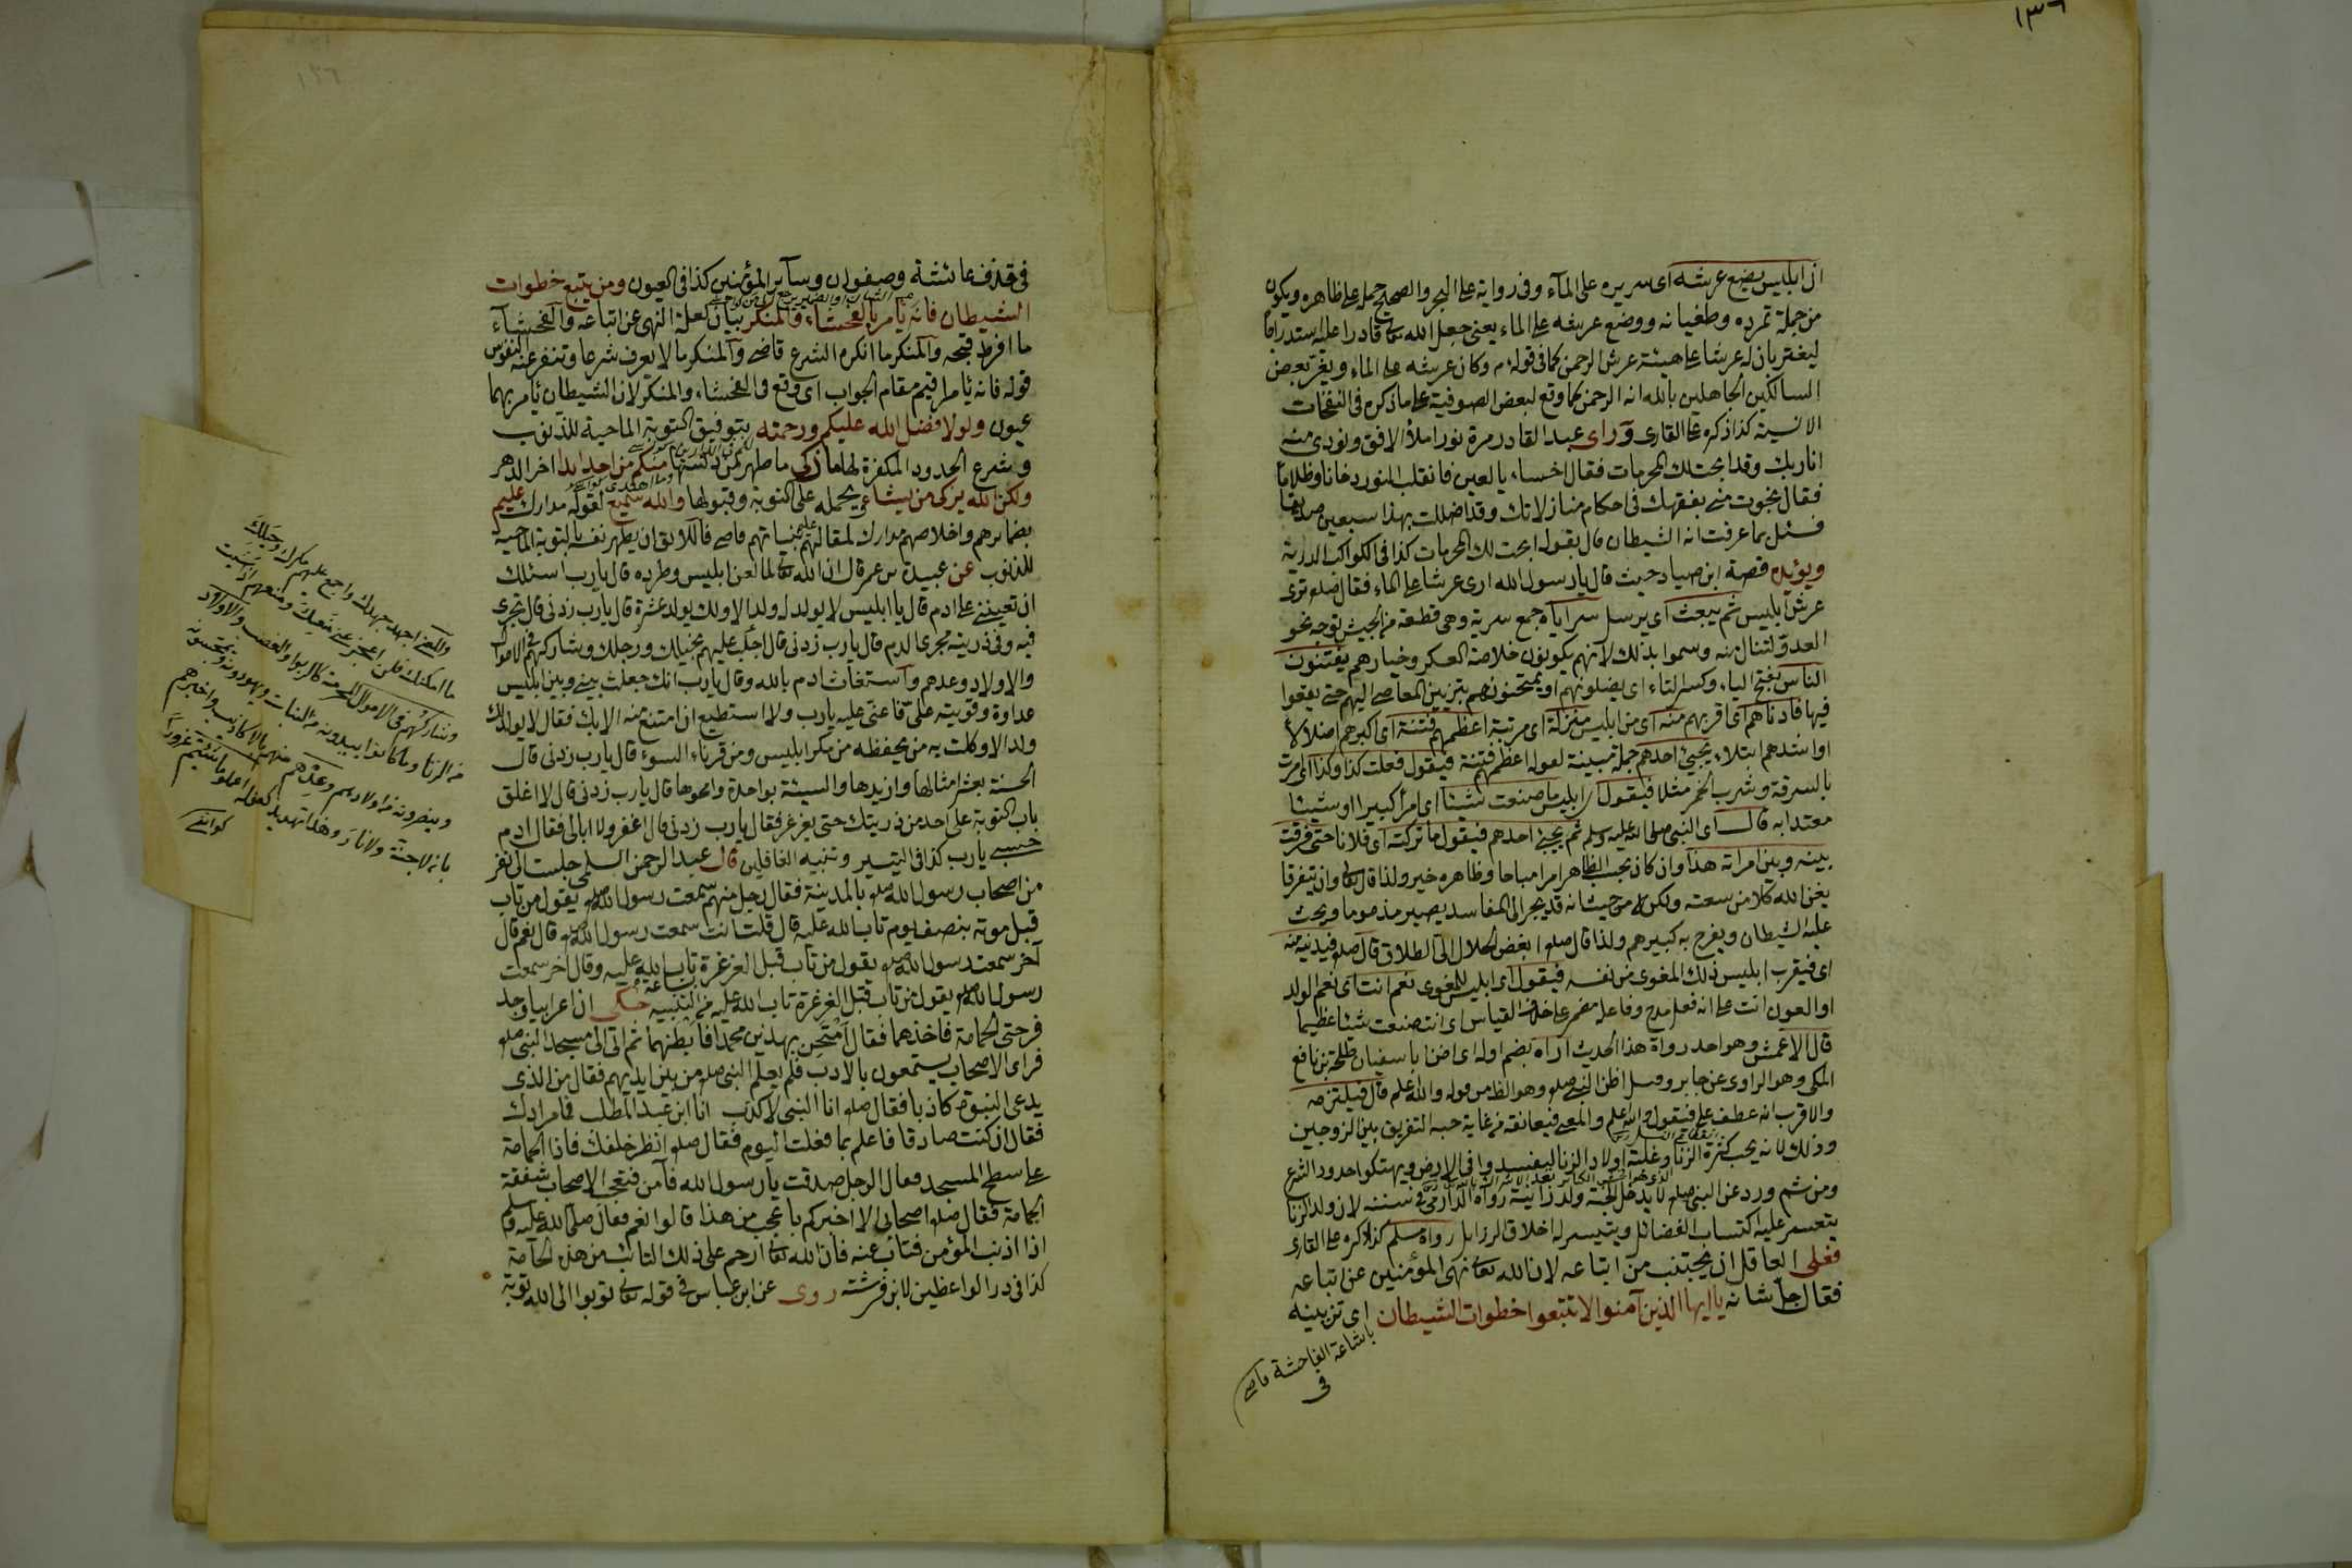 ١٣٦
ان ابليس يضع عرشه اى سريره على الماء وفى رواية على البحر والصحيح حمله على ظاهره ويكون
من جملة تمرده وطغيانه ووضع عرشه على الماء يعنى جعل الله تعالى قادرا عليه استدراجا
ليغتر بان له عرشا على هيئة عرش الرحمن كما فى قوله وكان عرشه على الماء ويغتر بعض
السالكين الجاهلين بالله انه الرحمن كما وقع لبعض الصوفية على ما ذكره فى النفحات
الانسية كذا ذكره على القارى ورأى عبد القادر مرة نورا ملأ الافق ونودى منه
انا ربك وقد ابحت لك المحرمات فقال اخساء يا لعين فانقلب النور دخانا وظلاما
فقال نجوت منى بفقهك فى احكام منازلاتك وقد اضللت بهذا سبعين صديقا
فسئل بما عرفت انه الشيطان قال بقوله ابحت لك المحرمات كذا فى الكواكب الدرية
ويؤيده قصة ابن صياد حيث قال يا رسول الله ارى عرشا على الماء فقال صلعم ترى
عرش ابليس ثم يبعث اى يرسل سراياه جمع سرية وهى قطعة من الجيش توجه نحو
العدو لتنال منه وسموا بذلك لانهم يكونون خلاصة العسكر وخيارهم يفتنون
الناس بفتح الياء وكسر التاء اى يضلونهم او يمتحنونهم بتزيين المعاصى اليهم حتى يقعوا
فيها فادناهم اى اقربهم منه اى من ابليس منزلة اى مرتبة اعظمهم فتنة اى اكبرهم اضلالا
او اشدهم ابتلاء يجيئ احدهم جملة مبينة لقوله اعظم فتنة فيقول فعلت كذا وكذا اى امرت
بالسرقة وشرب الخمر مثلا فيقول اى ابليس ما صنعت شيئا اى امرا كبيرا او شيئا
معتدا به قال اى النبى صلى الله عليه وسلم ثم يجيئ احدهم فيقول ما تركته اى فلانا حتى فرقت
بينه وبين امراته هذا وان كان بحسب الظاهر امرا مباحا وظاهره خير ولذا قال تعالى وان يتفرقا
يغن الله كلا من سعته ولكن من حيث انه قد يجر الى المفاسد يصير مذموما ويحث
عليه الشيطان ويفرح به كبيرهم ولذا قال صلعم ابغض الحلال الى الله الطلاق قال صلعم فيدنيه منه
اى فيقرب ابليس ذلك المغوى من نفسه فيقول اى ابليس للمغوى نعم انت اى نعم الولد
او العون انت على انه فعل مدح وفاعله مضمر على خلاف القياس اى انت صنعت شيئا عظيما
قال الاعمش وهو احد رواة هذا الحديث اراه بضم اوله اى اظن ابا سفيان طلحة بن نافع
المكى وهو الراوى عن جابر وقيل اظن النبى صلعم وهو الظاهر من قوله والله اعلم قال فيلتزمه
والاقرب انه عطف على فيقول والله اعلم والمعنى فيعانقه من غاية حبه التفريق بين الزوجين
وذلك لانه يحب كثرة الزنا وغلبة اولاد الزنا ليفسدوا فى الارض ويهتكوا حدود الشرع
ومن ثم ورد عن النبى صلعم لا يدخل الجنة ولد زانية رواه الدارمى فى سننه لان ولد الزنا
يتعسر عليه اكتساب الفضائل ويتيسر له اخلاق الرزايل رواه مسلم كذا ذكره على القارى
فعلى العاقل ان يجتنب من اتباعه لان الله تعالى نهى المؤمنين عن اتباعه
فقال جل شانه يا ايها الذين آمنوا لا تتبعوا خطوات الشيطان اى تزيينه
باشاعة الفاحشة
فى
١٣٦
فى قذف عائشة وصفوان وسآير المؤمنين كذا فى العيون ومن يتبع خطوات
الشيطان فانه يامر بالفحشاء والمنكر بيان لعلة النهى عن اتباعه والفحشآء
ما افرط قبحه والمنكر ما انكره الشرع قاضى والمنكر ما لا يعرف شرعا وتنفر عنه النفوس
قوله فانه يامر اقيم مقام الجواب اى وقع فى الفحشاء والمنكر لان الشيطان يامر بهما
عيون ولولا فضل الله عليكم ورحمته بتوفيق التوبة الماحية للذنوب
وشرع الحدود المكفرة لها ما زكى ما طهر من دنسها منكم من احد ابدا اخر الدهر
ولكن الله يزكى من يشاء يحمله على التوبة وقبولها والله سميع لقوله مدارك عليم
بضمائرهم واخلاصهم مدارك لمقالتهم عليم بنياتهم قاضى فاللائق ان يطهر نفسه بالتوبة الماحية
للذنوب عن عبيدة بن عمر قال ان الله تعالى لما لعن ابليس وطرده قال يا رب اسئلك
ان تعيننى على ادم قال يا ابليس لا يولد له ولد الا ولك يولد عشرة قال يا رب زدنى قال تجرى
فيه وفى ذريته مجرى الدم قال يا رب زدنى قال اجلب عليهم بخيلك ورجلك وشاركهم فى الاموال
والاولاد وعدهم واستغاث ادم بالله وقال يا رب انك جعلت بينى وبين ابليس
عداوة وقويته على فاعنى عليه يا رب ولا استطيع ان امتنع منه الا بك فقال لا يولد لك
ولد الا وكلت به من يحفظه من مكر ابليس ومن قرناء السوء قال يا رب زدنى قال
الحسنة بعشر امثالها وازيدها والسيئة بواحدة وامحوها قال يا رب زدنى قال لا اغلق
باب التوبة على احد من ذريتك حتى يغرغر فقال يا رب زدنى قال اغفر ولا ابالى فقال ادم
حسبى يا رب كذا فى التيسير وتنبيه الغافلين قال عبد الرحمن السلمى جلست الى نفر
من اصحاب رسول الله صلعم بالمدينة فقال رجل منهم سمعت رسول الله صلعم يقول من تاب
قبل موته بنصف يوم تاب الله عليه قال قلت انت سمعت رسول الله صلعم قال نعم قال
آخر سمعت رسول الله صلعم يقول من تاب قبل الغرغرة تاب الله عليه وقال اخر سمعت
رسول الله صلعم يقول من تاب قبل الغرغرة تاب الله عليه من التنبيه حكى ان اعرابيا وجد
فرختى الحمامة فاخذهما فقال امتحن بهذين محمدا فابطنهما ثم اتى الى مسجد النبى صلعم
فراى الاصحاب يستمعون بالادب فلم يعلم النبى صلعم من بين ايديهم فقال من الذى
يدعى النبوة كاذبا فقال صلعم انا النبى لا كذب انا ابن عبد المطلب فما مرادك
فقال ان كنت صادقا فاعلم بما فعلت اليوم فقال صلعم انظر خلفك فاذا الحمامة
على سطح المسجد فقال الرجل صدقت يا رسول الله فآمن فتعجب الاصحاب شفقة
الحمامة فقال صلعم اصحابى الا اخبركم باعجب من هذا قالوا نعم فقال صلى الله عليه وسلم
اذا اذنب المؤمن فتاب عنه فان الله تعالى ارحم على ذلك التائب من هذه الحمامة
كذا فى در الواعظين لابن فرشته روى عن ابن عباس فى قوله تعالى توبوا الى الله توبة
والمعنى اجهد جهدك واجمع عليهم مكرك وحيلك
ما امكنك فلن اعجز عن منعك ومنعهم ان شئت
وشاركهم فى الاموال المحرمة كالربوا والغصب والاولاد
من الزنا وما كانوا يئدونه من البنات ويهودونه ويمجسونه
وينصرونه من اولادهم وعدهم منهم بالاكاذيب واخبرهم
بانه لا جنة ولا نار وهذا تهديد كقوله اعملوا ما شئتم غرورا
كواشى